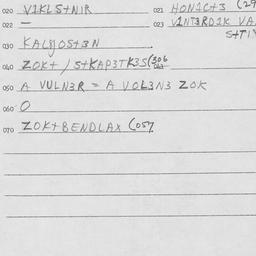 020 V1KLS+N1R 021 HON1C+3 (29
022 — 023 V1NT3RD1K VA
S+T1
030 KALJOS+3N
040 ZOK+ / S+KAP3TK3S(306
050 A VULN3R = A VOL3N3 ZOK
060 O
070 ZOK+BENDLAX (057